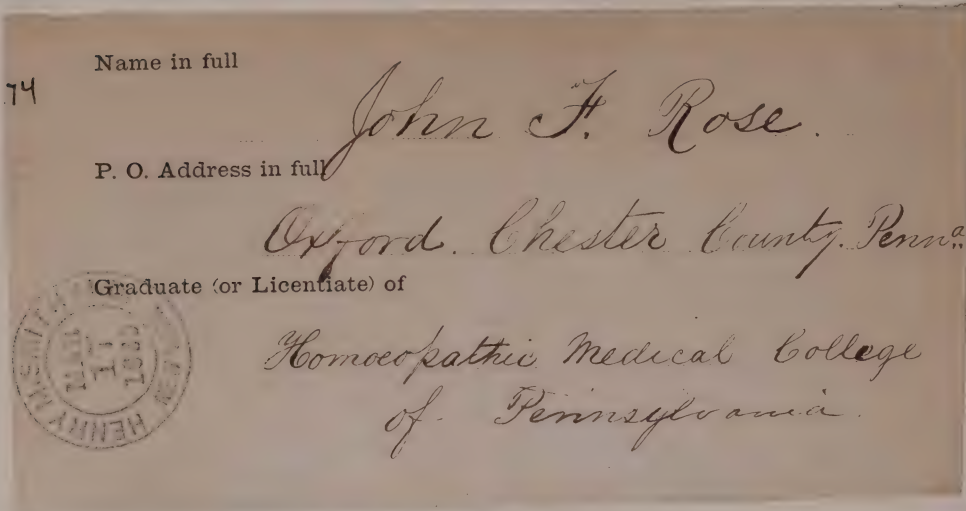 Name in full
74
John F. Rose.
P. O. Address in full
Oxford. Chester County. Penna.
Graduate (or Licentiate) of
Homoeopathic Medical College
of Pennsylvania.
HENRY M. SMITH
MAR
17
NEW